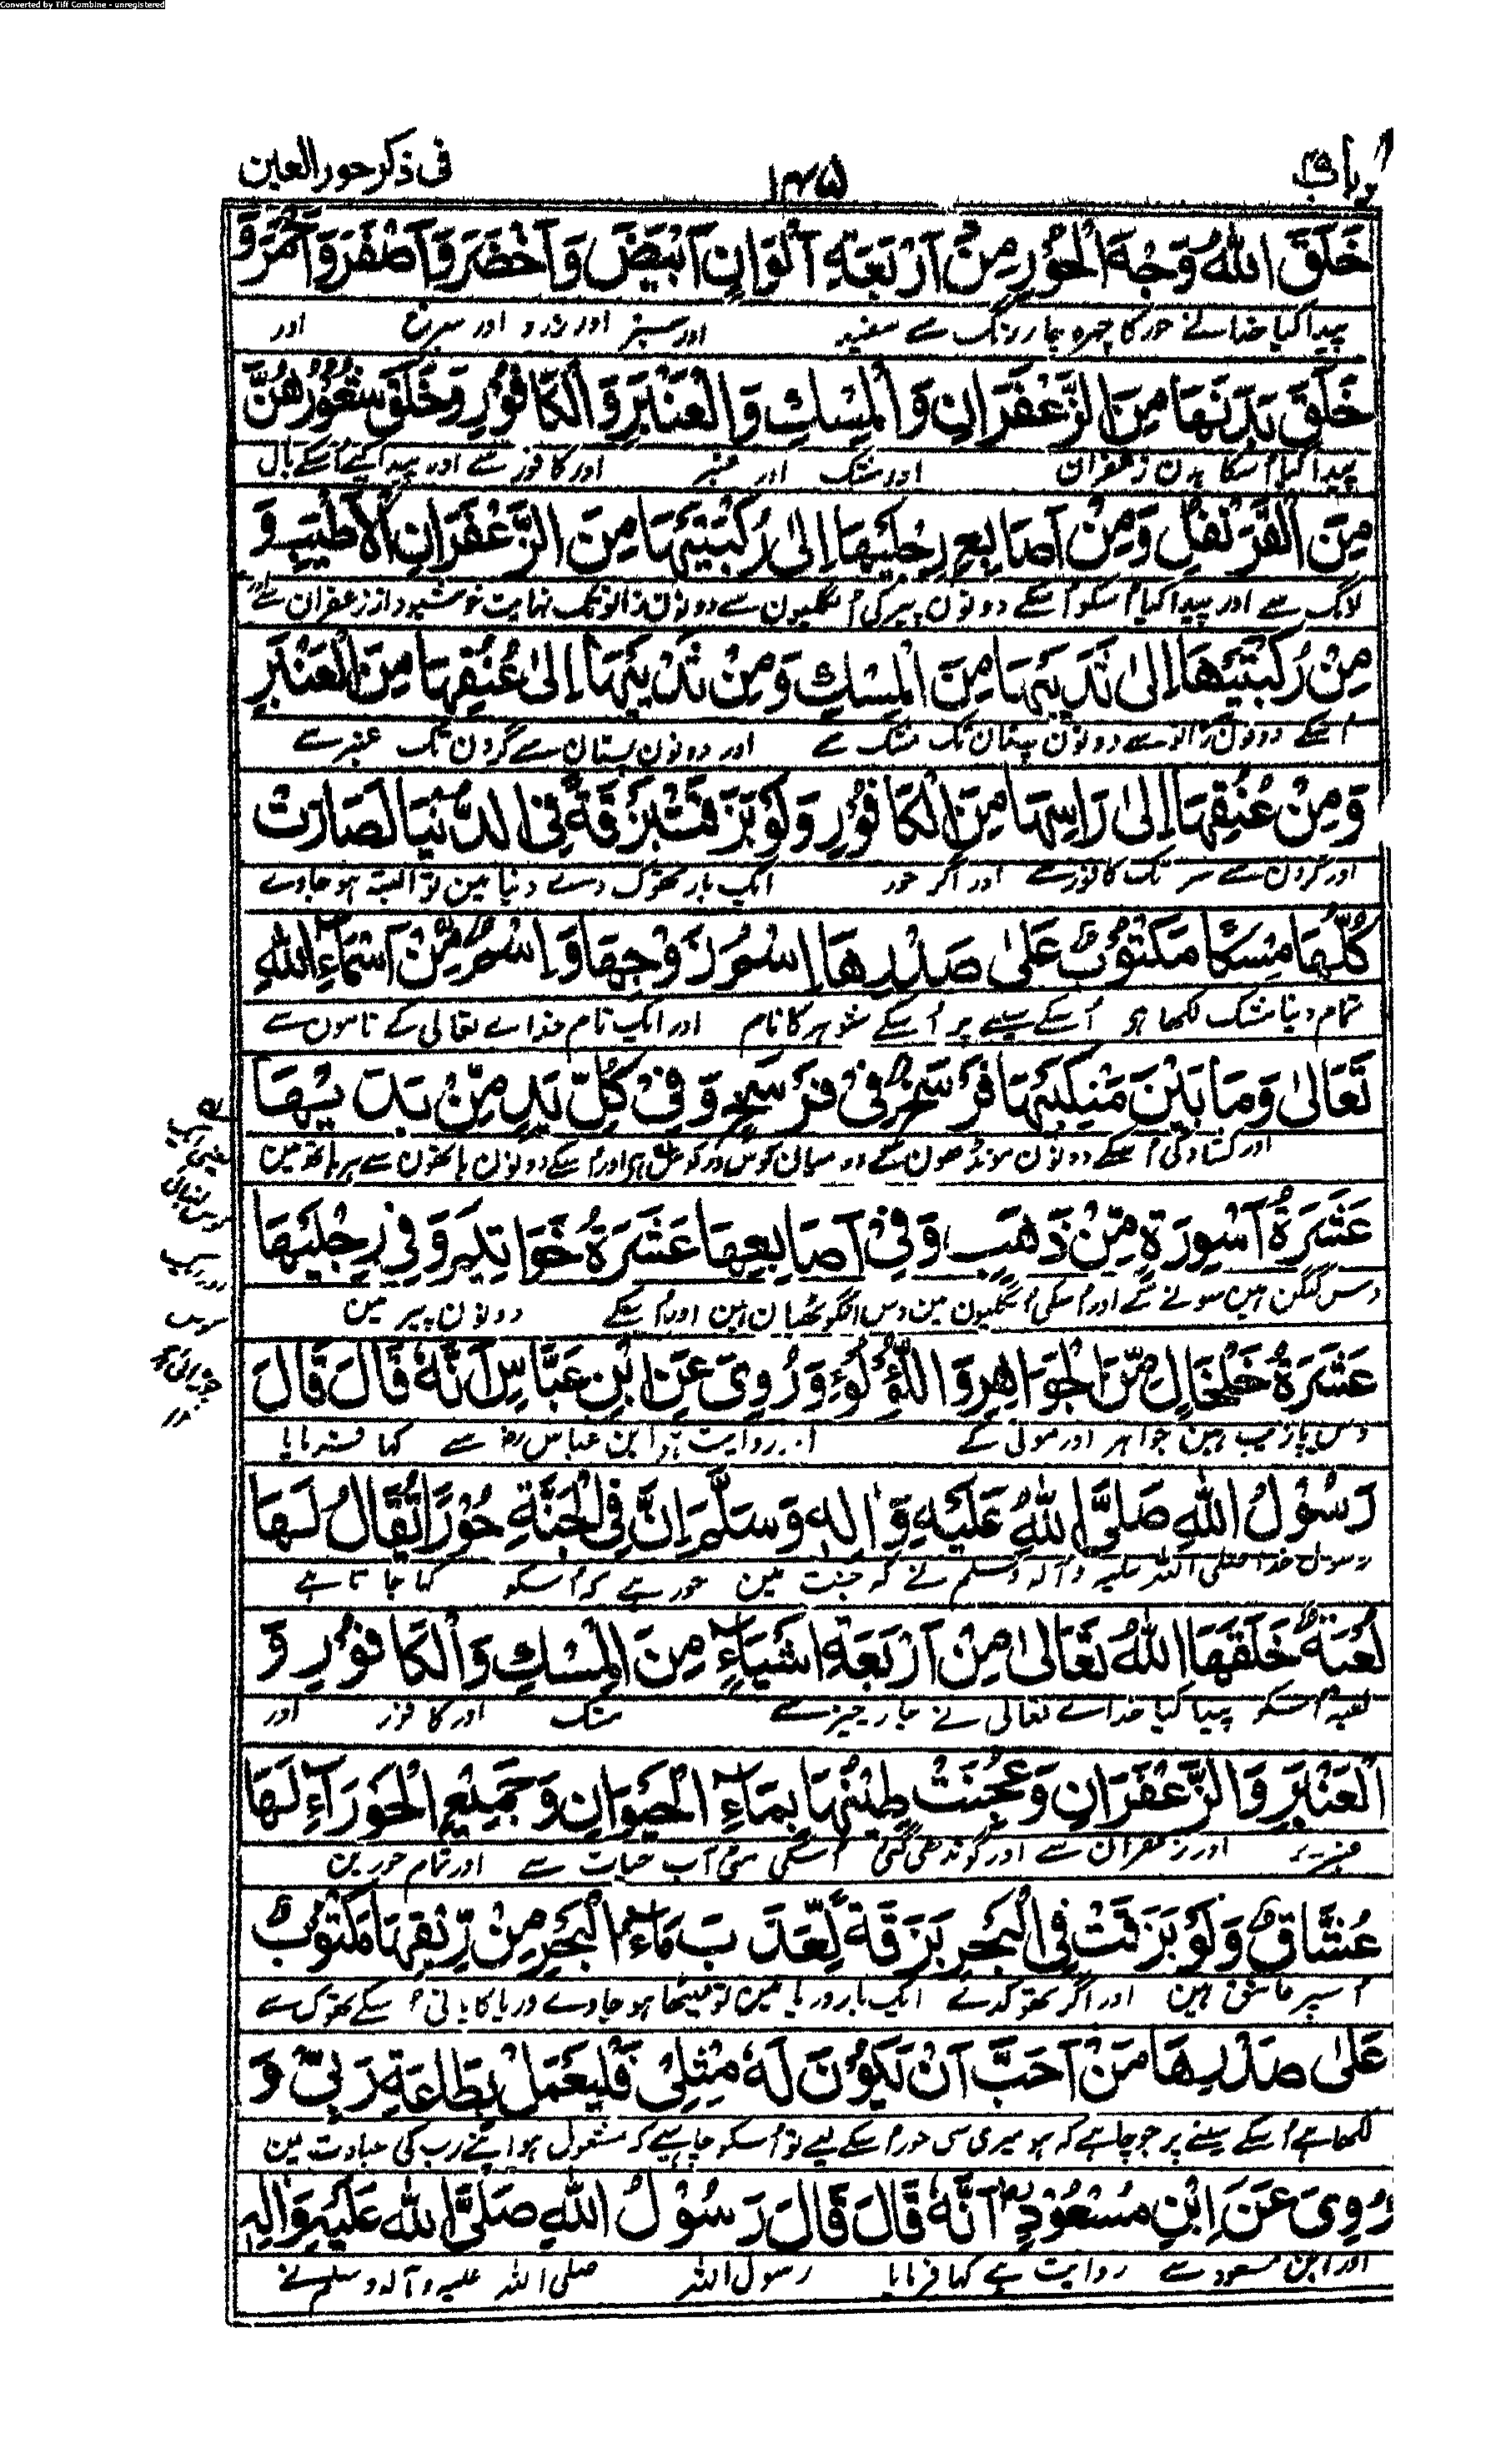 Converted by Tiff Combine - unregistered
باب ۳۵
۱۴۵
فی ذکر حور العین
خَلَقَ اللّٰهُ وَجْهَ الْحُوْرِ مِنْ اَرْبَعَةِ اَلْوَانٍ اَبْیَضَ وَاَخْضَرَ وَاَصْفَرَ وَاَحْمَرَ وَ
پیدا کیا خدا نے حور کا چہرہ چار رنگ سے سفید اور سبز اور زرد اور سرخ اور
خَلَقَ بَدَنَهَا مِنَ الزَّعْفَرَانِ وَالْمِسْكِ وَالْعَنْبَرِ وَالْکَافُوْرِ وَخَلَقَ شُعُوْرَهُنَّ
پیدا کیا اُسکا بدن زعفران اور مشک اور عنبر اور کافور سے اور پیدا کیے اُسکے بال
مِنَ الْقَرَنْفُلِ وَمِنْ اَصَابِعِ رِجْلَیْهَا اِلٰی رُکْبَتَیْهَا مِنَ الزَّعْفَرَانِ الْاَطْیَبِ وَ
لانگ سے اور پیدا کیا اُسکو اُسکے دونوں پیر کی اُنگلیون سے دونون زانو تک نہایت خوشبودار زعفران سے اور
مِنْ رُکْبَتَیْهَا اِلٰی ثَدْیَیْهَا مِنَ الْمِسْكِ وَمِنْ ثَدْیَیْهَا اِلٰی عُنُقِهَا مِنَ الْعَنْبَرِ
اُسکے دونون زانو سے دونون پستان تک مشک سے اور دونون پستان سے گردن تک عنبر سے
وَمِنْ عُنُقِهَا اِلٰی رَاسِهَا مِنَ الْکَافُوْرِ وَلَوْ بَزَقَتْ بَزْقَةً فِی الدُّنْیَا لَصَارَتْ
اور گردن سے سر تک کافور سے اور اگر حور ایک بار تھوک دے دنیا مین تو البتہ ہو جاوے
کُلُّهَا مِسْکًا مَکْتُوْبٌ عَلٰی صَدْرِهَا اِسْمُ زَوْجِهَا وَاِسْمٌ مِّنْ اَسْمَآءِ اللّٰهِ
تمام دنیا مشک لکھا ہے اُسکے سینے پر اُسکے شوہر کا نام اور ایک نام خداے تعالی کے نامون سے
تَعَالٰی وَمَا بَیْنَ مَنْکِبَیْهَا فَرْسَخٌ فِیْ فَرْسَخٍ وَفِیْ کُلِّ یَدٍ مِّنْ یَدَیْهَا
اور کشادگی اُسکے دونون مونڈھون کے درمیانی کوس در کوس ہے اور اُسکے دونون ہاتھون سے ہر ہاتھ مین
عَشَرَةُ اَسْوِرَةٍ مِّنْ ذَهَبٍ وَفِیْ اَصَابِعِهَا عَشَرَةُ خَوَاتِیْمَ وَفِیْ رِجْلَیْهَا
دس کنگن ہین سونے کے اور اُسکی اُنگلیون مین دس انگوٹھیان ہین اور اُسکے دونون پیر مین
عَشَرَةُ خَلْخَالٍ مِّنَ الْجَوَاهِرِ وَاللُّؤْلُوْءِ وَرُوِیَ عَنِ ابْنِ عَبَّاسٍ اَنَّهٗ قَالَ قَالَ
دس پازیب ہین جواہر اور موتی کے روایت ہے ابن عباس رض سے کہا فرمایا
رَسُوْلُ اللّٰهِ صَلَّی اللّٰهُ عَلَیْهِ وَاٰلِهٖ وَسَلَّمَ اِنَّ فِی الْجَنَّةِ حُوْرًا یُّقَالُ لَهَا
رسول خدا صلی اللہ علیہ وآلہ وسلم نے کہ جنت مین حور ہے کہ اُسکو کہا جاتا ہے
لُعْبَةٌ خَلَقَهَا اللّٰهُ تَعَالٰی مِنْ اَرْبَعَةِ اَشْیَآءٍ مِنَ الْمِسْكِ وَالْکَافُوْرِ وَ
لعبہ اُسکو پیدا کیا خداے تعالی نے چار چیز سے مشک اور کافور اور
الْعَنْبَرِ وَالزَّعْفَرَانِ وَعُجِنَتْ طِیْنُهَا بِمَآءِ الْحَیَوَانِ وَجَمِیْعُ الْحَوَرَآءِ لَهَا
عنبر اور زعفران سے اور گوندھی گئی اُسکی مٹی آب حیات سے اور تمام حورین
عُشَّاقٌ وَلَوْ بَزَقَتْ فِی الْبَحْرِ بَزْقَةً لَّعَذَبَ مَآءُ الْبَحْرِ مِنْ رِّیْقِهَا مَکْتُوْبٌ
اُسپر عاشق ہین اور اگر تھوکدے ایک بار دریا مین تو میٹھا ہو جاوے دریا کا پانی اُسکے تھوک سے
عَلٰی صَدْرِهَا مَنْ اَحَبَّ اَنْ یَکُوْنَ لَهٗ مِثْلِیْ فَلْیَعْمَلْ بِطَاعَةِ رَبِّیْ وَ
لکھا ہے اُسکے سینے پر جو چاہے کہ ہو میری سی حور اُسکے لیے تو اُسکو چاہیے کہ مشغول ہو اپنے رب کی عبادت مین
رُوِیَ عَنِ ابْنِ مَسْعُوْدٍ اَنَّهٗ قَالَ قَالَ رَسُوْلُ اللّٰهِ صَلَّی اللّٰهُ عَلَیْهِ وَاٰلِهٖ
اور ابن مسعود سے روایت ہے کہا فرمایا رسول اللہ صلی اللہ علیہ وآلہ وسلم نے